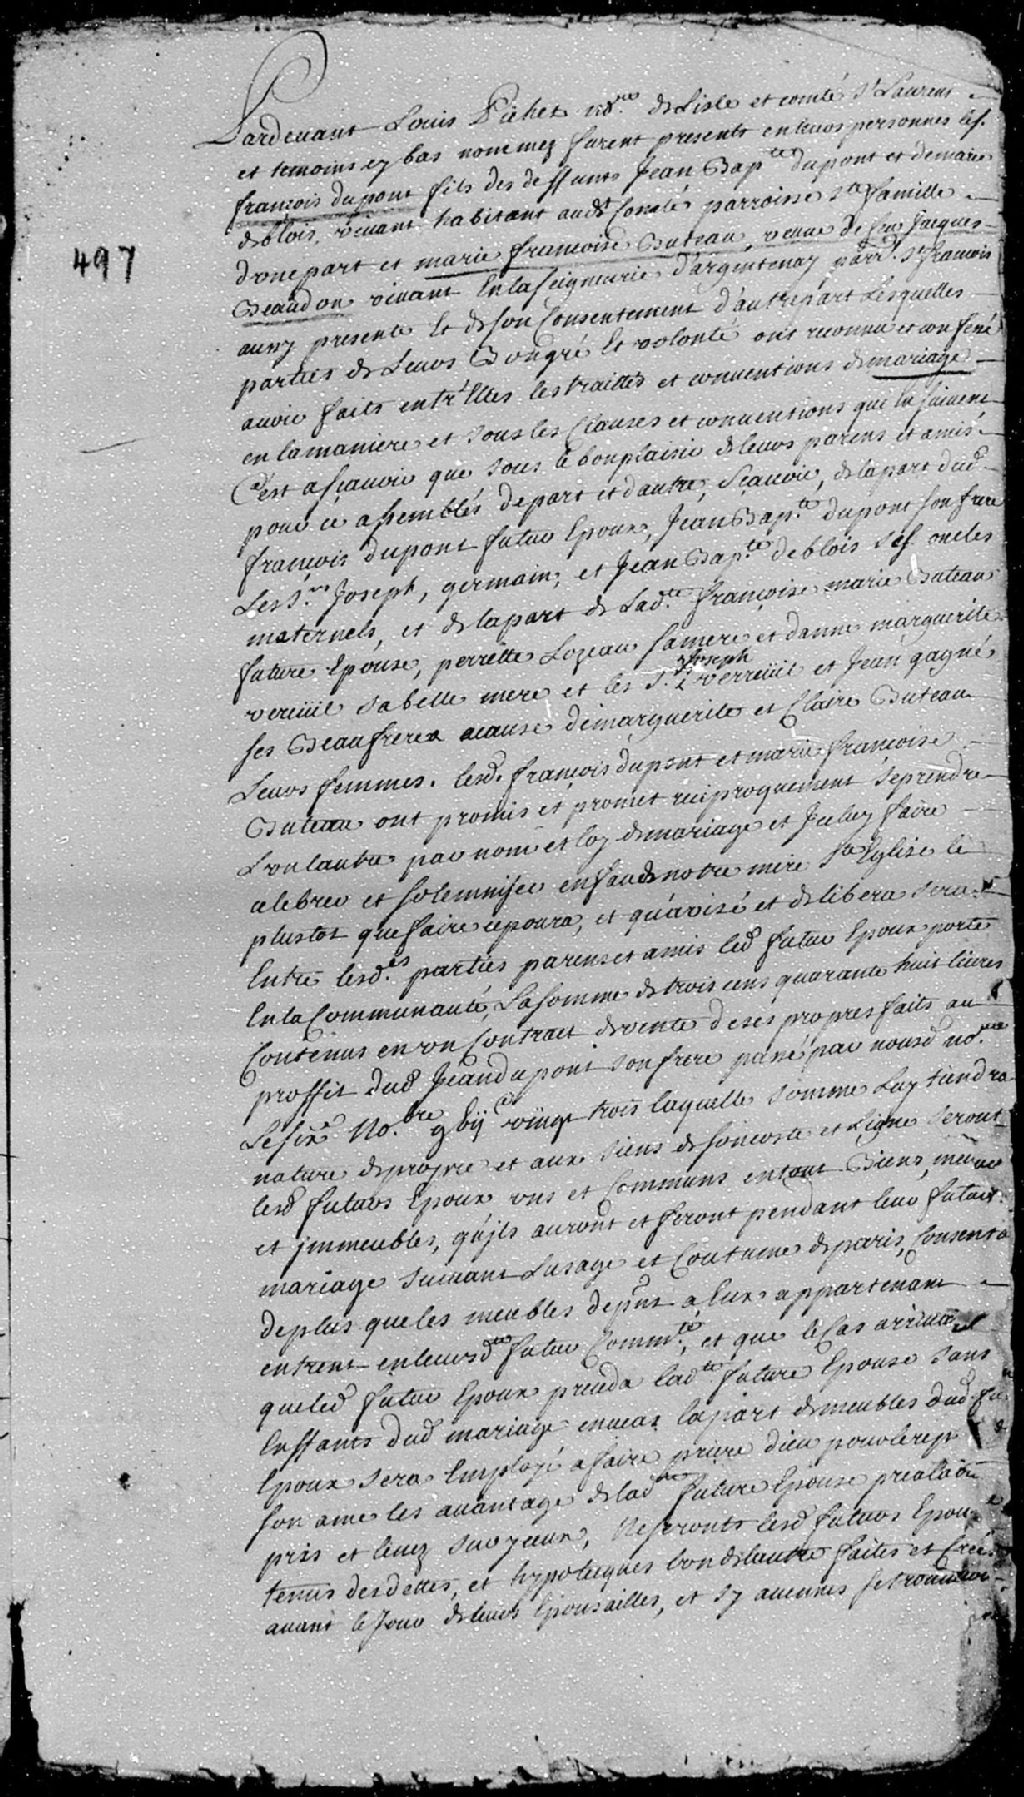 Pardevant Louis Pichet no.re de Lisle et comté St Laurens
et temoins cy bas nommez furent presents en leurs personnes le Sr.
françois dupont fils des deffunts Jean Bap.te dupont et de marie
deblois vivant habitant audt Comté parroisse Ste famille
d'une part et marie francoise Buteau, veuve de feu Jacques
497
Beaudon vivant En la seigneurie d'argentenay parr. St francois
aussy presente Et de son Consentement d'autre part Lesquelles
parties de Leurs Bon gré Et volonté ont reconnu et confessé
avoir faits entr'Elles les traittés et conventions de mariage
en la maniere et sous les Clauses et conventions qui En suivent
C'est asçavoir que sous le bon plaisir de leurs parens et amis
pour ce assemblés de part et d'autre, Sçavoir, de la part dud.
françois dupont futur Epoux, Jean Bap.te dupont son frere
Les Srs Joseph, germain, et Jean Bap.te deblois ses oncles
maternels, et de la part de Lad.te françoise marie Buteau
future Epouse, perrette Lozeau sa mere et danne marguerite
vereuil sa belle mere et les Srs Joseph verreüil et Jean gagné
ses Beaufreres acause de marguerite et Claire Buteau
Leurs femmes. lesd. françois dupont et marie françoise
Buteau ont promis et promet reciproquement se prendre
L'un lautre par nom et loy de mariage et Iceluy faire
celebrer et solemniser en face de notre mere Ste Eglise le
plustot que faire ce poura, et qu'avisé et deliberé sera
Entre lesd.es parties parens et amis led futur Epoux porte
En la Communauté, La somme de trois cens quarante huit livres
Contenus en un Contract de vente de ses propres faits au
proffit dud Jean dupont son frere passé par nousd no.re
Le six No.bre gbijc vingt trois laquelle somme Luy tiendra
nature de propre et aux siens de son costé et Ligne seront
lesd futurs Epoux uns et Communs en tout Biens, meubles
et jmmeubles, qu'jls auront et feront pendant leur futur
mariage suivant L'usage et Coutume de paris, Consent
deplus que les meubles de pnt a Eux appartenant
entrent en leursd. futur Comm.té, et que le Cas arrivant
que led futur Epoux preceda lad.te future Epouse sans
Enffants dud mariage la part de meubles dud
Epoux sera Employé a faire priere dieu pour le
son ame les avantage de lad.te future Epouse prealable
pris et levez sur yceux, Ne seronts lesd futurs Epoux
tenus des dettes, et hypoteques lun de lautre faites et
avant le Jour de leurs Epousailles, et sy aucunes se